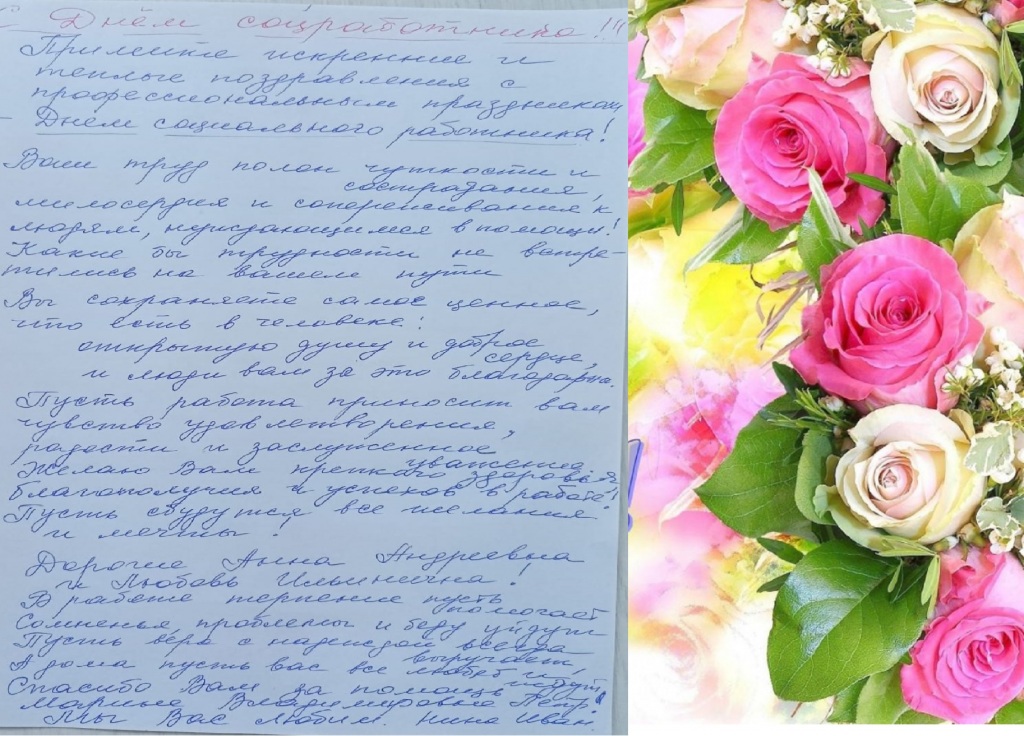 С Днём соцработника!!!
Примите искренние и
теплые поздравления с
профессиональным праздником
– Днём социального работника!
Ваш труд полон чуткости и
сострадания,
милосердия и сопереживания к
людям, нуждающимся в помощи!
Какие бы трудности не встре-
тились на вашем пути
Вы сохраняете самое ценное,
что есть в человеке:
открытую душу и доброе
сердце,
и люди вам за это благодарны.
Пусть работа приносит вам
чувство удовлетворения,
радости и заслуженное
уважение
Желаю Вам крепкого здоровья
благополучия и успехов в работе!
Пусть сбудутся все желания
и мечты!
Дорогие Анна Андреевна
и Любовь Ильинична!
В работе терпение пусть
помогает
Сомненья, проблемы и беду уйдут
Пусть вера с надеждой всегда
выручает,
А дома пусть вас все любят и
ждут!
Спасибо Вам за помощь
Марине Владимировне Петр
Мы Вас любим. Нина Иван